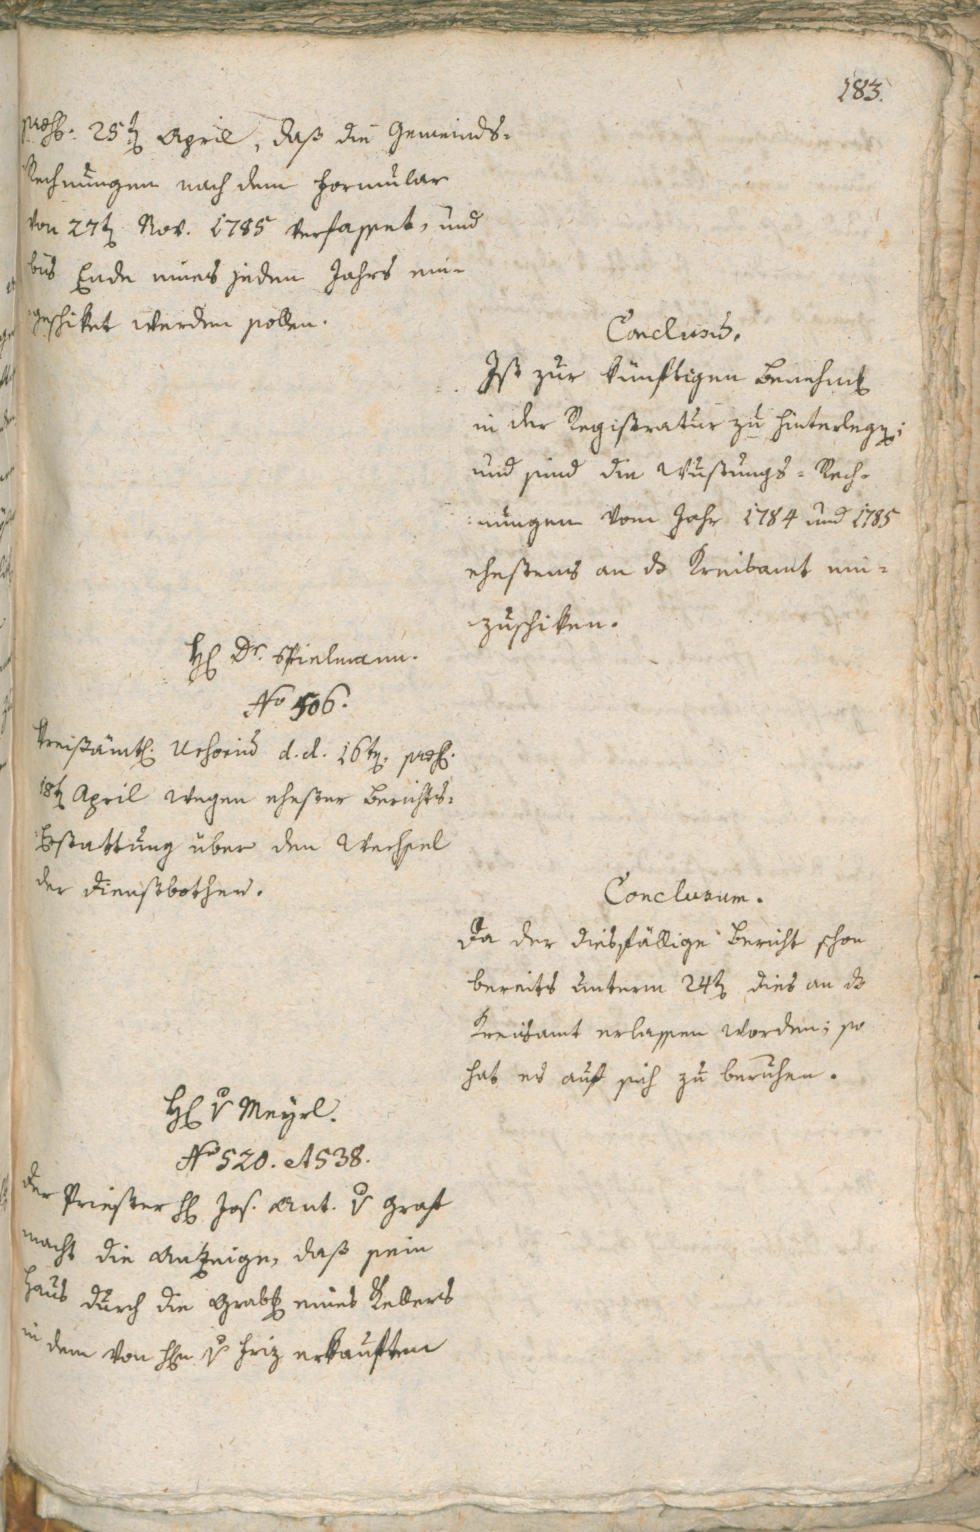 183.
præs. 25t April, daß die Gemeinds-
Rechnungen nach dem Formular
von 27t Nov. 1785 verfasset, und
bis Ende eines jeden Jahrs ein-
geschiket werden sollen.
Conclusum.
Ist zur künftigen Benehmung
in der Registratur zu hinterlegen;
und sind die Wustungs-Rech-
nungen vom Jahr 1784 und 1785
ehestens an das Kreisamt ein-
zuschiken.
H. Dr. Spielmann.
No 506.
Kreisämtl. d. d. 16t, præs.
18t April wegen ehester Berichts-
Erstattung über den Wechsel
der Dienstbothen.
Conclusum.
Da der diesfällige Bericht schon
bereits unterm 24t dies an das
Kreisamt erlassen worden; so
hat es auf sich zu beruhen.
H. v Meyrl.
No 520. A 538.
Der Priester H. Jos. Ant. v Graff
macht die Anzeige, daß sein
Haus durch die Grabung eines Kellers
in dem von Hn. v Friz erkauften